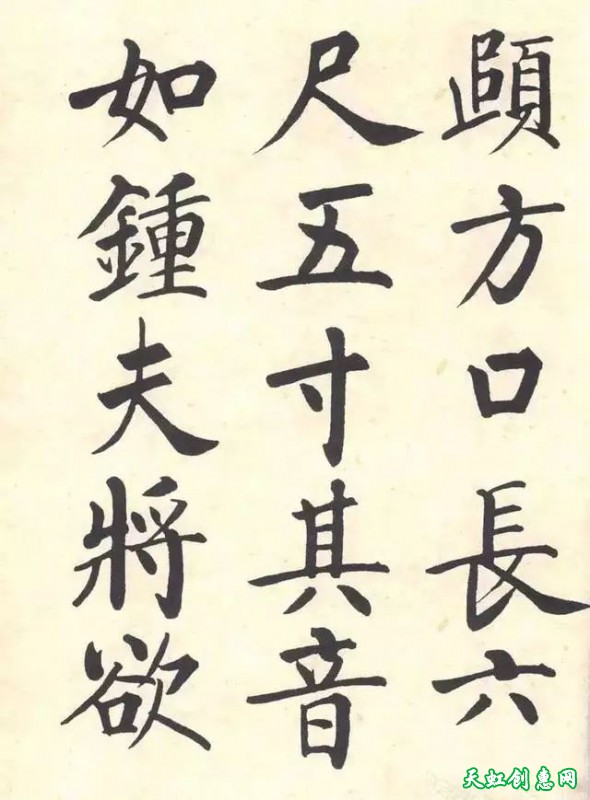 頤方口長六
尺五寸其音
如鍾夫將欲
天虹创惠网